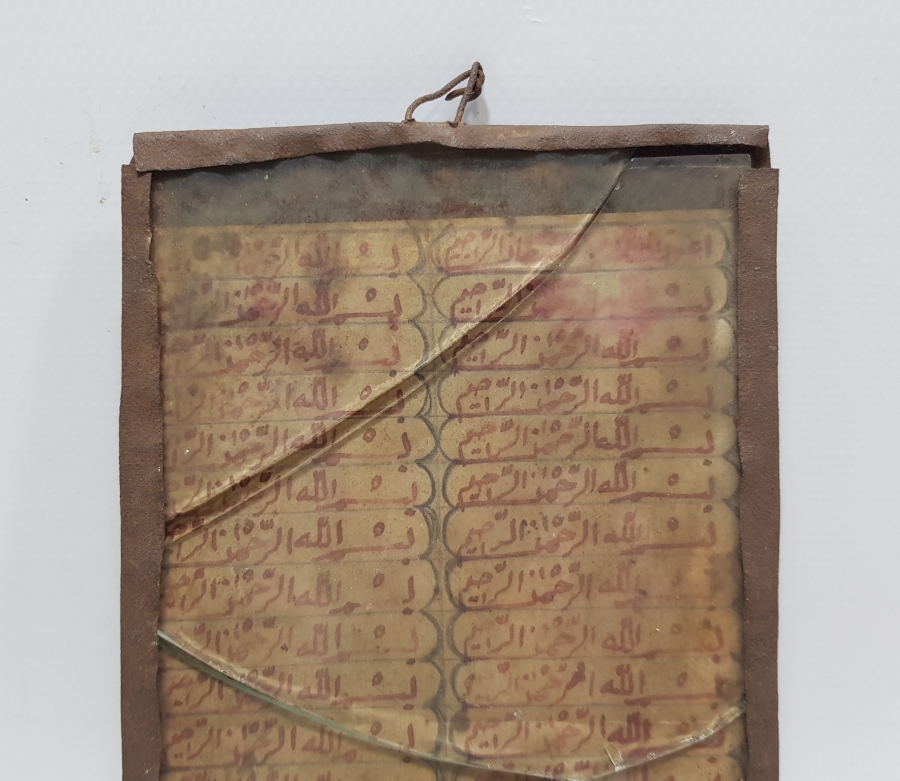 اعوذ الرجيم
بسم الرحيم
بسم الله الرحمن الرحيم
بسم الله الرحمن الرحيم
بسم الله الرحمن الرحيم
بسم الله الرحمن الرحيم
بسم الله الرحمن الرحيم
بسم الله الرحمن الرحيم
بسم الله الرحمن الرحيم
بسم الله الرحمن الرحيم
بسم الله الرحمن الرحيم
بسم الله
بسم الله الرحمن
بسم الله الرحمن
بسم الله الرحمن
بسم الله الرحمن
بسم الله الرحمن
بسم الله الرحمن الرحيم
بسم الله الرحمن الرحيم
بسم الله الرحمن الرحيم
بسم الله الرحمن الرحيم
بسم الله الرحمن الرحيم